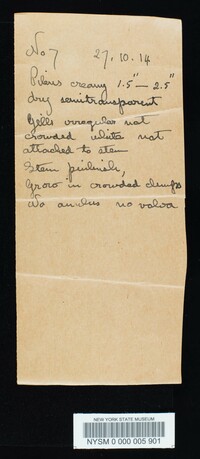 No 7 27.10.14
Pileus creamy 1.5" — 2.5"
dry semitransparent
Gills irregular not
crowded white not
attached to stem
Stem pinkish,
Grow in crowded clumps
No anulus no volva
NEW YORK STATE MUSEUM
NYSM 0 000 005 901